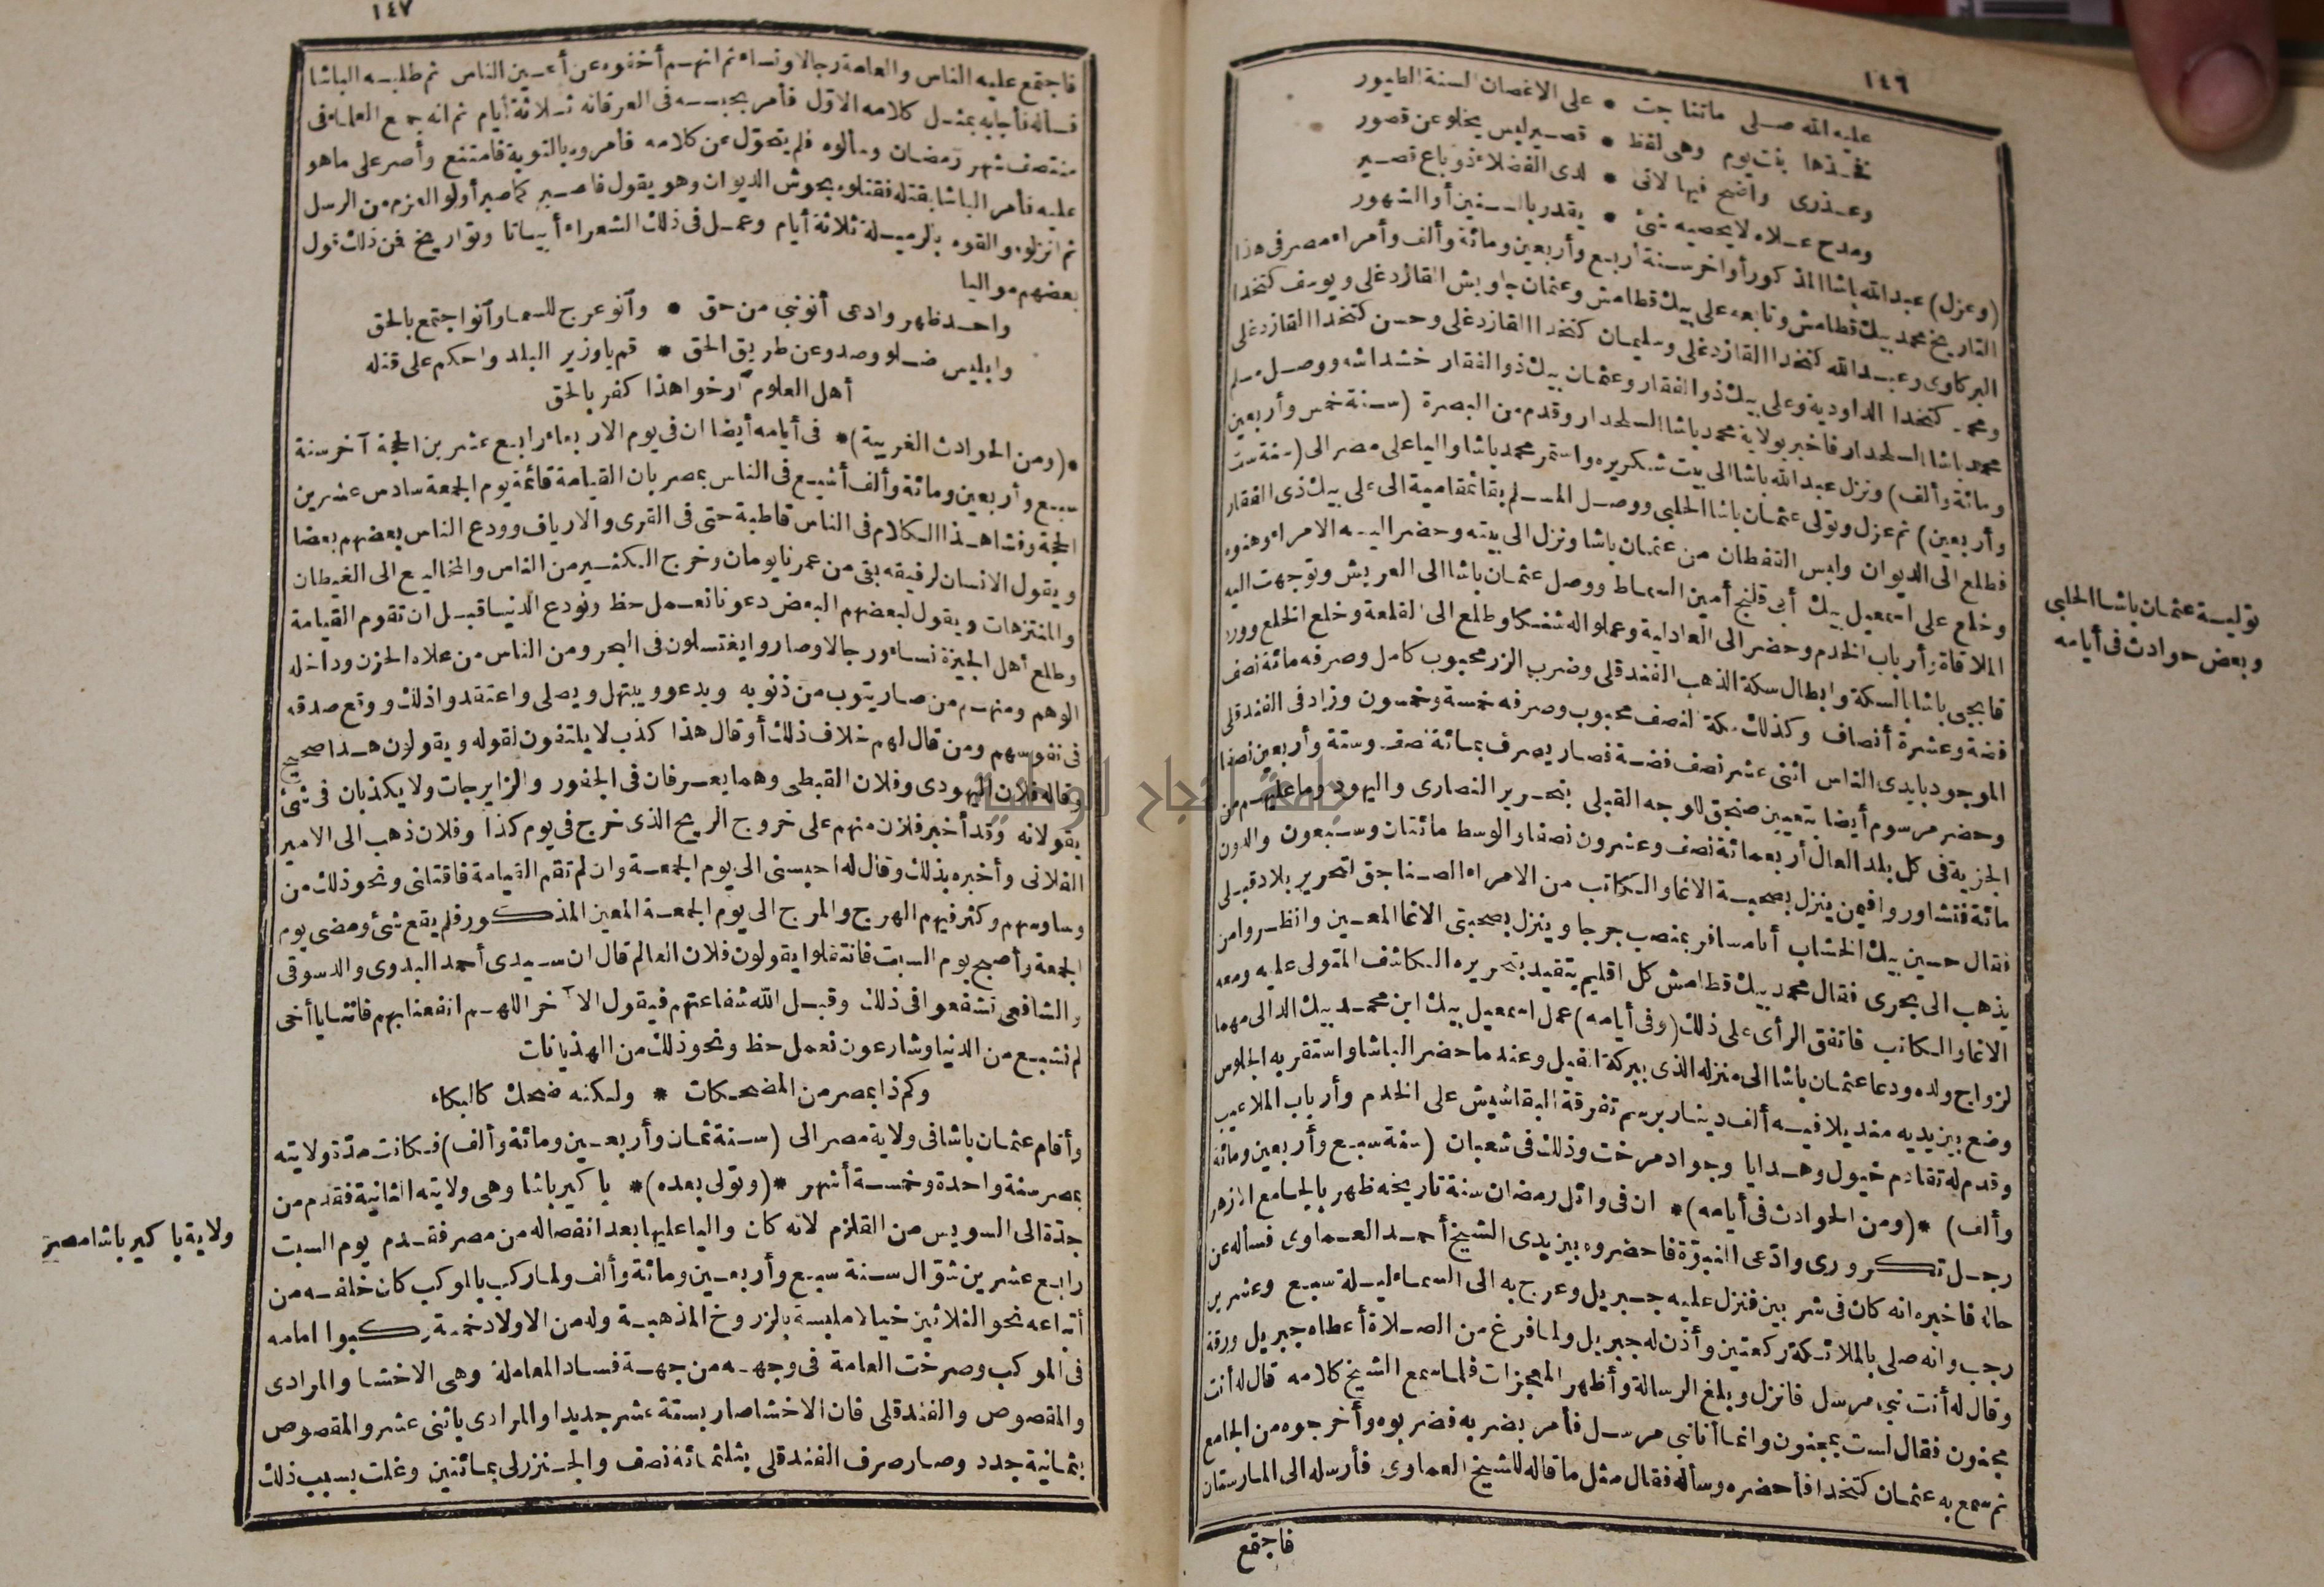 ١٤٦
عليه الله صلى ما تناجت * على الاغصان السنة الطيور
فخذها بنت يوم وهى لفظ * قصير ليس يخلو عن قصور
وعذرى واضح فيها لانى * لدى الفضلاء ذو باع قصير
ومدح علاه لا يحصيه شئ * يقدر بالسنين أو الشهور
(وعزل) عبد الله باشا المذكور أواخر سنة أربع وأربعين ومائة وألف وأمراء مصر فى هذا
التاريخ محمد بيك قطامش وتابعه على بيك قطامش وعثمان جاويش القازدغلى ويوسف كتخدا
البركاوى وعبد الله كتخدا القازدغلى وسليمان كتخدا القازدغلى وحسن كتخدا القازدغلى
ومحمد كتخدا الداودية وعلى بيك ذو الفقار وعثمان بيك ذو الفقار خشداشه ووصل مسلم
محمد باشا السلحدار فاخبر بولاية محمد باشا السلحدار وقدم من البصرة (سنة خمس وأربعين
ومائة وألف) ونزل عبد الله باشا الى بيت شكربره واستمر محمد باشا واليا على مصر الى (سنة ست
وأربعين) ثم عزل وتولى عثمان باشا الحلبى ووصل المسلم بقائمقامية الى على بيك ذى الفقار
فطلع الى الديوان ولبس القفطان من عثمان باشا ونزل الى بيته وحضر اليه الامراء وهنوه
وخلع على اسمعيل بيك أبى قلنج أمين السماط ووصل عثمان باشا الى العريش وتوجهت اليه
الملاقاة وأرباب الخدم وحضر الى العادلية وعملوا له شنكا وطلع الى القلعة وخلع الخلع وورد
قابجى باشا بالسكة وابطال سكة الذهب الفندقلى وضرب الزر محبوب كامل وصرفه مائة نصف
فضة وعشرة أنصاف وكذلك سكة النصف محبوب وصرفه خمسة وخمسون وزاد فى الفندقلى
الموجود بايدى الناس اثنى عشر نصف فضة فصار يصرف بمائة نصف وستة وأربعين نصفا
وحضر مرسوم أيضا بتعيين صنجق للوجه القبلى بتحرير النصارى واليهود وما عليهم من
الجزية فى كل بلد العال أربعمائة نصف وعشرون نصفا والوسط مائتان وسبعون والدون
مائة فتشاوروا فيمن ينزل بصحبة الاغا والكاتب من الامراء الصناجق لتحرير بلاد قبلى
فقال حسين بيك الخشاب أنا مسافر بمنصب جرجا وينزل بصحبتى الاغا المعين وانظروا من
يذهب الى بحرى فقال محمد بيك قطامش كل اقليم يتقيد بتحريره الكاشف المتولى عليه ومعه
الاغا والكاتب فاتفق الرأى على ذلك (وفى أيامه) عمل اسمعيل بيك ابن محمد بيك الدالى مهما
لزواج ولده ودعا عثمان باشا الى منزله الذى ببركة الفيل وعندما حضر الباشا واستقر به الجلوس
وضع بين يديه منديلا فيه ألف دينار برسم تفرقة البقاشيش على الخدم وأرباب الملاعيب
وقدم له تقادم خيول وهدايا وجواد مرخت وذلك فى شعبان (سنة سبع وأربعين ومائة
وألف) *(ومن الحوادث فى أيامه)* ان فى أوائل رمضان سنة تاريخه ظهر بالجامع الازهر
رجل تكرورى وادعى النبوة فاحضروه بين يدى الشيخ أحمد العماوى فسأله عن
حاله فاخبره انه كان فى شربين فنزل عليه جبريل وعرج به الى السماء ليلة سبع وعشرين
رجب وانه صلى بالملائكة ركعتين وأذن له جبريل ولما فرغ من الصلاة أعطاه جبريل ورقة
وقال له أنت نبى مرسل فانزل وبلغ الرسالة وأظهر المعجزات فلما سمع الشيخ كلامه قال له أنت
مجنون فقال لست بمجنون وانما أنا نبى مرسل فأمر بضربه فضربوه وأخرجوه من الجامع
ثم سمع به عثمان كتخدا فأحضره وسأله فقال مثل ما قاله للشيخ العماوى فأرسله الى المارستان
فاجتمع
تولية عثمان باشا الحلبى
وبعض حوادث فى أيامه
١٤٧
فاجتمع عليه الناس والعامة رجالا ونساء ثم انهم أخفوه عن أعين الناس ثم طلبه الباشا
فسأله فأجابه بمثل كلامه الاول فأمر بحبسه فى العرقانه ثلاثة أيام ثم انه جمع العلماء فى
منتصف شهر رمضان وسألوه فلم يتحول عن كلامه فأمروه بالتوبة فامتنع وأصر على ما هو
عليه فأمر الباشا بقتله فقتلوه بحوش الديوان وهو يقول فاصبر كما صبر أولو العزم من الرسل
ثم انزلوه والقوه بالرميلة ثلاثة أيام وعمل فى ذلك الشعراء أبياتا وتواريخ فمن ذلك قول
بعضهم مواليا
واحد ظهر وادعى أنو نبى من حق * وآنو عرج للسما وآنو اجتمع بالحق
وابليس ضلو وصدو عن طريق الحق * قم يا وزير البلد واحكم على قتله
أهل العلوم ارخوا هذا كفر بالحق
*(ومن الحوادث الغريبة)* فى أيامه أيضا ان فى يوم الاربعاء رابع عشرين الحجة آخر سنة
سبع وأربعين ومائة وألف أشيع فى الناس بمصر بان القيامة قائمة يوم الجمعة سادس عشرين
الحجة وفشا هذا الكلام فى الناس قاطبة حتى فى القرى والارياف وودع الناس بعضهم بعضا
ويقول الانسان لرفيقه بقى من عمرنا يومان وخرج الكثير من الناس والمخاليع الى الغيطان
والمنتزهات ويقول لبعضهم البعض دعونا نعمل حظ ونودع الدنيا قبل ان تقوم القيامة
وطلع أهل الجيزة نساء ورجالا وصاروا يغتسلون فى البحر ومن الناس من علاه الحزن وداخله
الوهم ومنهم من صار يتوب من ذنوبه ويدعو ويبتهل ويصلى واعتقدوا ذلك ووقع صدقه
فى نفوسهم ومن قال لهم خلاف ذلك أو قال هذا كذب لا يلتفون لقوله ويقولون هذا صحيح
وقاله فلان اليهودى وفلان القبطى وهما يعرفان فى الجفور والزايرجات ولا يكذبان فى شئ
يقولانه وقد أخبر فلان منهم على خروج الريح الذى خرج فى يوم كذا وفلان ذهب الى الامير
الفلانى وأخبره بذلك وقال له احبسنى الى يوم الجمعة وان لم تقم القيامة فاقتلنى ونحو ذلك من
وساوسهم وكثر فيهم الهرج والمرج الى يوم الجمعة المعين المذكور فلم يقع شئ ومضى يوم
الجمعة وأصبح يوم السبت فانتقلوا يقولون فلان العالم قال ان سيدى أحمد البدوى والدسوقى
والشافعى تشفعوا فى ذلك وقبل الله شفاعتهم فيقول الآخر اللهم انفعنا بهم فاننا يا أخى
لم نشبع من الدنيا وشارعون نعمل حظ ونحو ذلك من الهذيانات
وكم ذا بمصر من المضحكات * ولكنه ضحك كالبكاء
وأقام عثمان باشا فى ولاية مصر الى (سنة ثمان وأربعين ومائة وألف) فكانت مدة ولايته
بمصر سنة واحدة وخمسة أشهر *(وتولى بعده)* باكير باشا وهى ولايته الثانية فقدم من
جدة الى السويس من القلزم لانه كان واليا عليها بعد انفصاله من مصر فقدم يوم السبت
رابع عشرين شوال سنة سبع وأربعين ومائة وألف ولما ركب بالموكب كان خلفه من
أتباعه نحو الثلاثين خيالا ملبسة بالزروخ المذهبة وله من الاولاد خمسة ركبوا امامه
فى الموكب وصرخت العامة فى وجهه من جهة فساد المعاملة وهى الاخشا والمرادى
والمقصوص والفندقلى فان الاخشا صار بستة عشر جديدا والمرادى باثنى عشر والمقصوص
بثمانية جدد وصار صرف الفندقلى بثلثمائة نصف والجنزرلى بمائتين وغلت بسبب ذلك
ولاية باكير باشا مصر
جامعة النجاح الوطنية